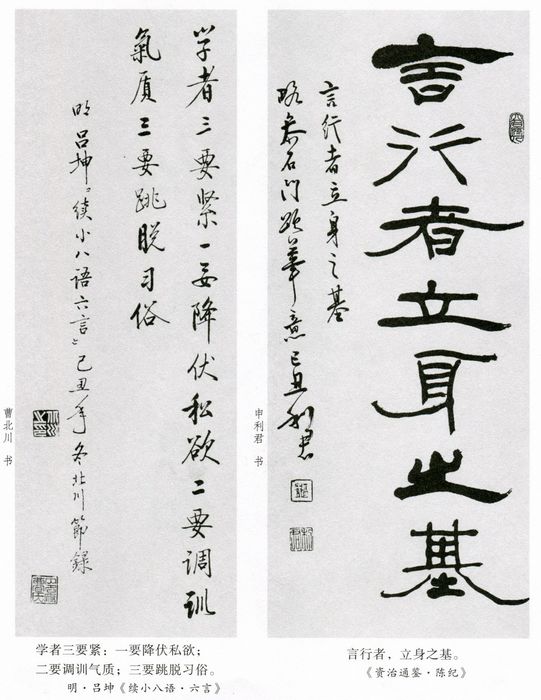 言行者立身之基
言行者立身之基
略参石门颂筆意己丑利君
申利君 书
言行者，立身之基。
《资治通鉴·陈纪》
学者三要紧一要降伏私欲二要调训
氣质三要跳脱习俗
明吕坤《续小八语六言》己丑年冬北川節録
曹北川 书
学者三要紧：一要降伏私欲；
二要调训气质；三要跳脱习俗。
明·吕坤《续小八语·六言》